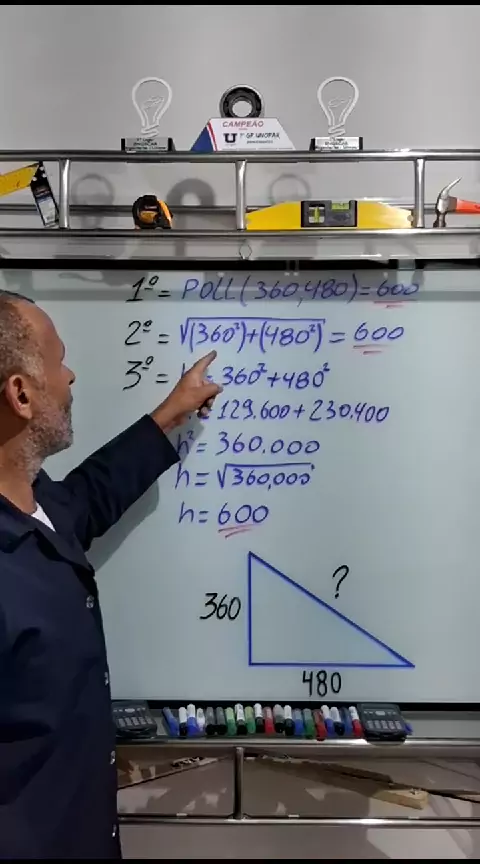 CAMPEÃO
U 1º GP UNOPAR
1º = POLL(360,480)=600
2º = √(360²)+(480²) = 600
3º = = 360²+480²
= 129.600+230.400
h² = 360.000
h = √360,000
h = 600
360
?
480